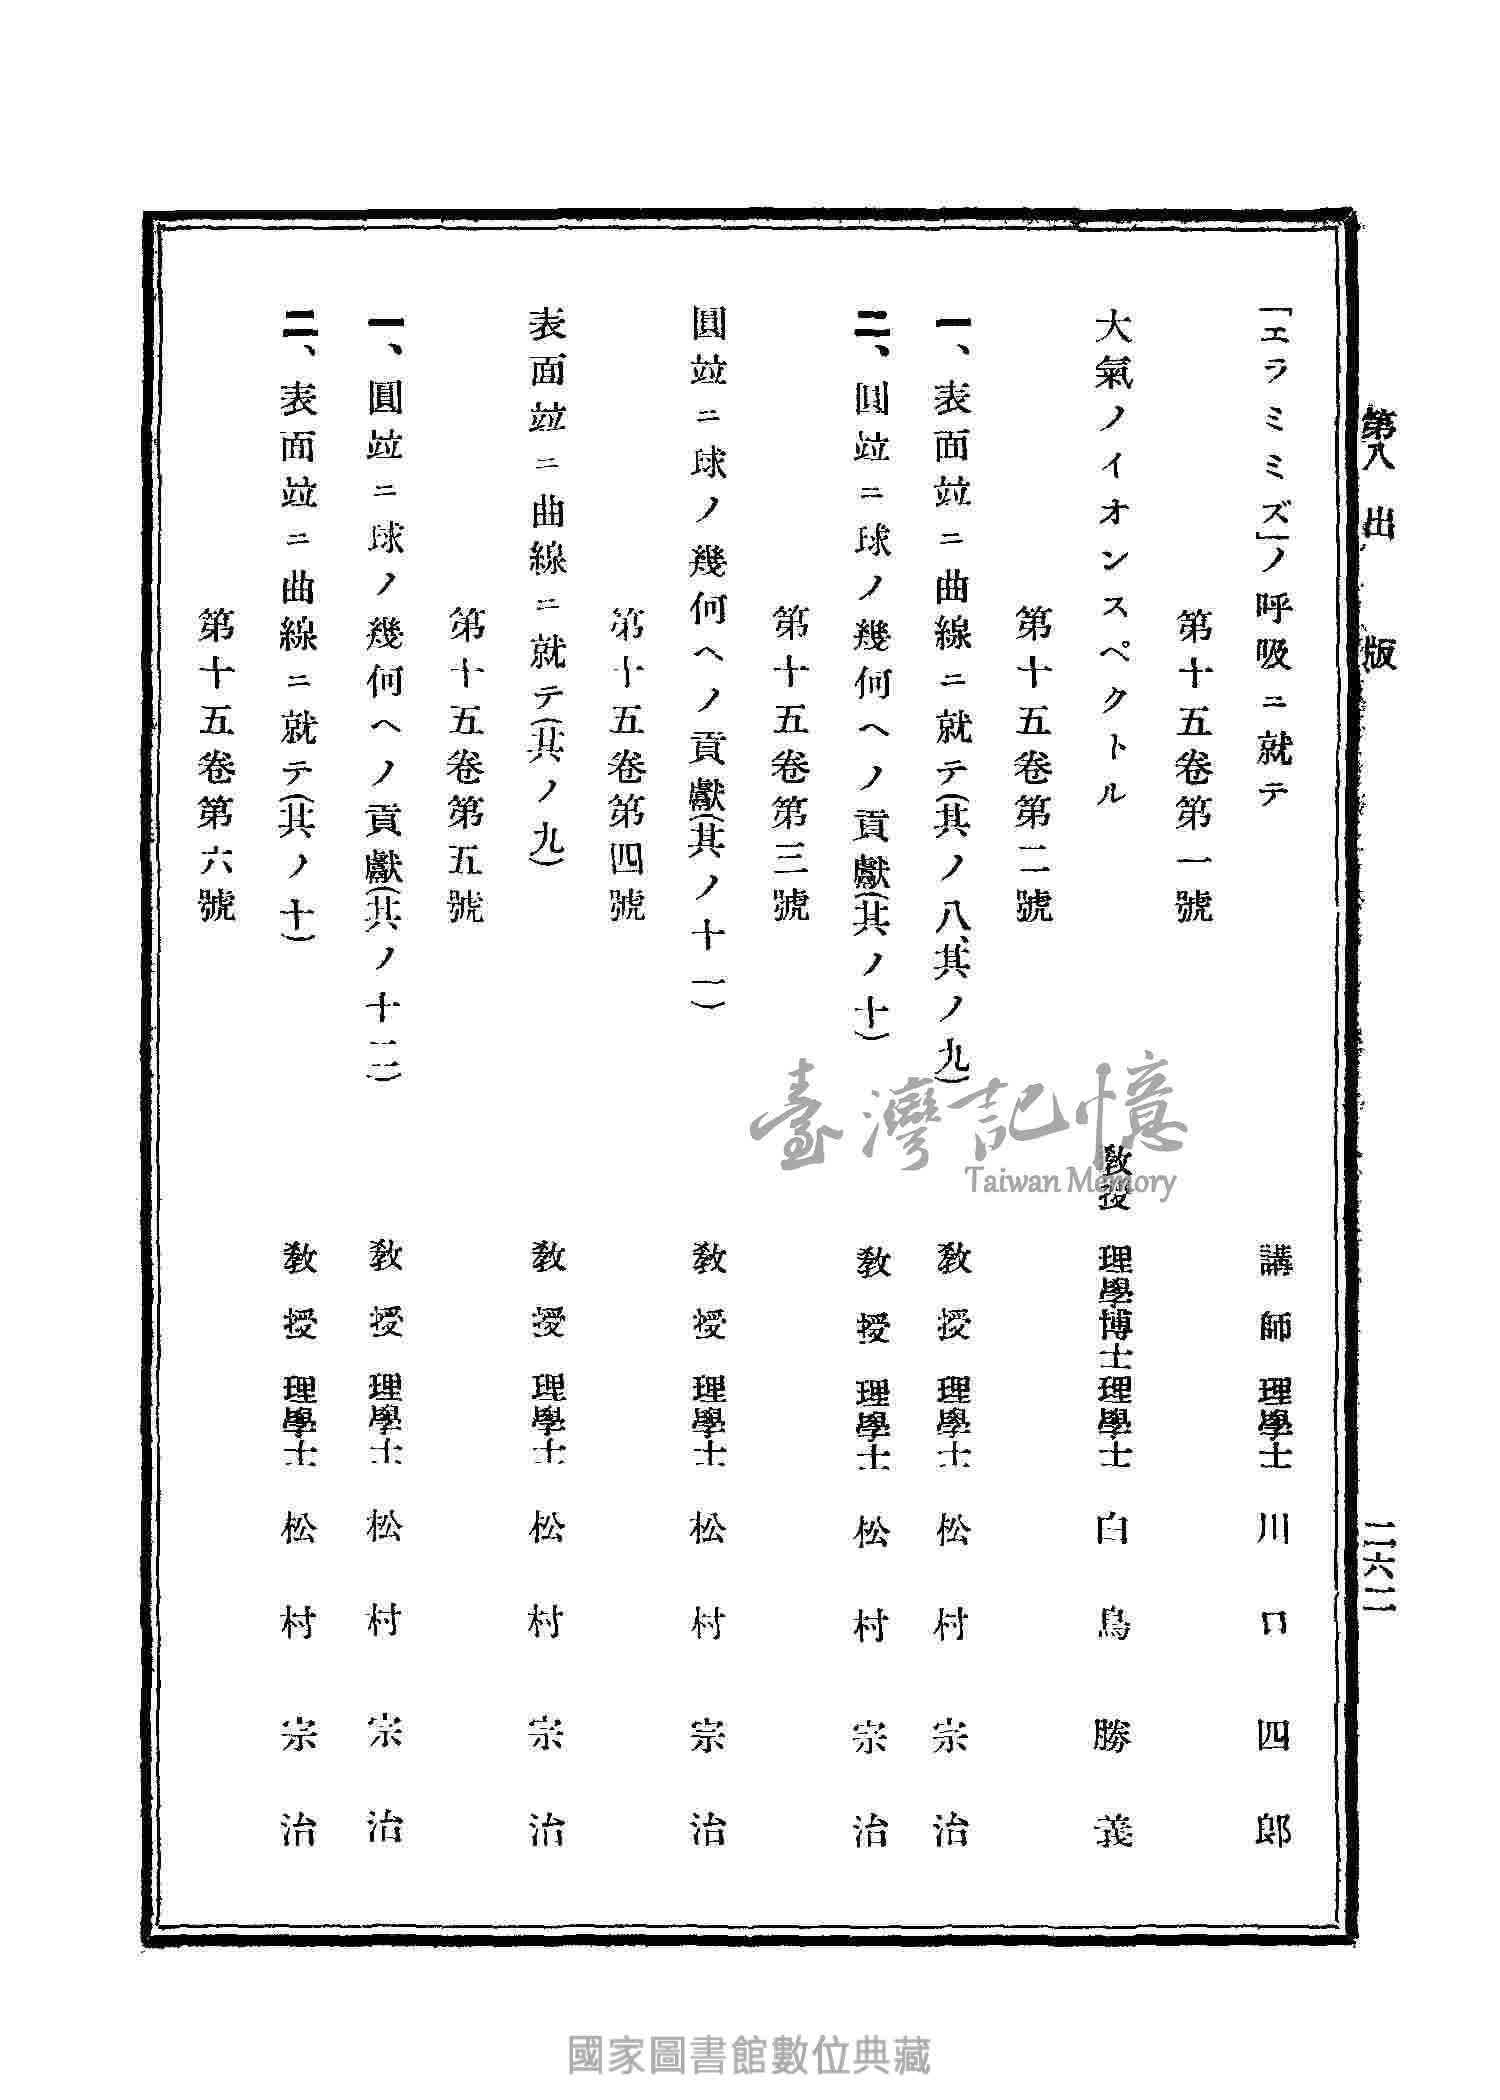 第八 出版 二六二
「エラミミズ」ノ呼吸ニ就テ 講師 理學士 川口四郎
第十五卷第一號
大氣ノイオンスペクトル 敎授 理學博士理學士 白鳥勝義
第十五卷第二號
一、表面竝ニ曲線ニ就テ(其ノ八、其ノ九) 敎授 理學士 松村宗治
二、圓竝ニ球ノ幾何ヘノ貢獻(其ノ十) 敎授 理學士 松村宗治
第十五卷第三號
圓竝ニ球ノ幾何ヘノ貢獻(其ノ十一) 敎授 理學士 松村宗治
第十五卷第四號
表面竝ニ曲線ニ就テ(其ノ九) 敎授 理學士 松村宗治
第十五卷第五號
一、圓竝ニ球ノ幾何ヘノ貢獻(其ノ十二) 敎授 理學士 松村宗治
二、表面竝ニ曲線ニ就テ(其ノ十) 敎授 理學士 松村宗治
第十五卷第六號
臺灣記憶
Taiwan Memory
國家圖書館數位典藏